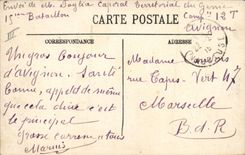 Envoi de M. Saglia Caporal Territorial du Génie
15e Bataillon Compie 13 T
Avignon
CARTE POSTALE
CORRESPONDANCE
ADRESSE
Un gros bonjour
d'avignon. Santé
bonne,
que cela dure c'est
le principal
Grosse caresse a tous
Marius
Madame
Rue Capus Vert 47
Marseille
B.d.R